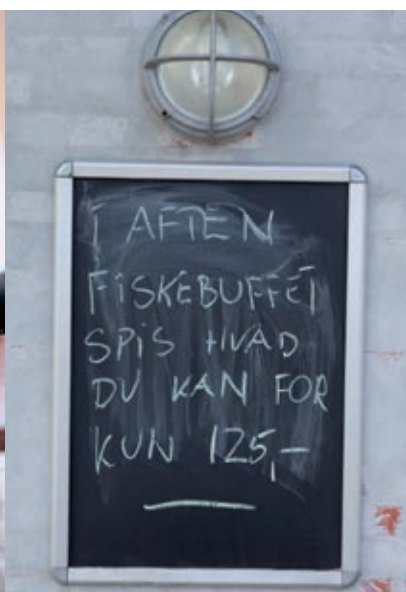 I AFTEN
FISKEBUFFET
SPIS HVAD
DU KAN FOR
KUN 125,-